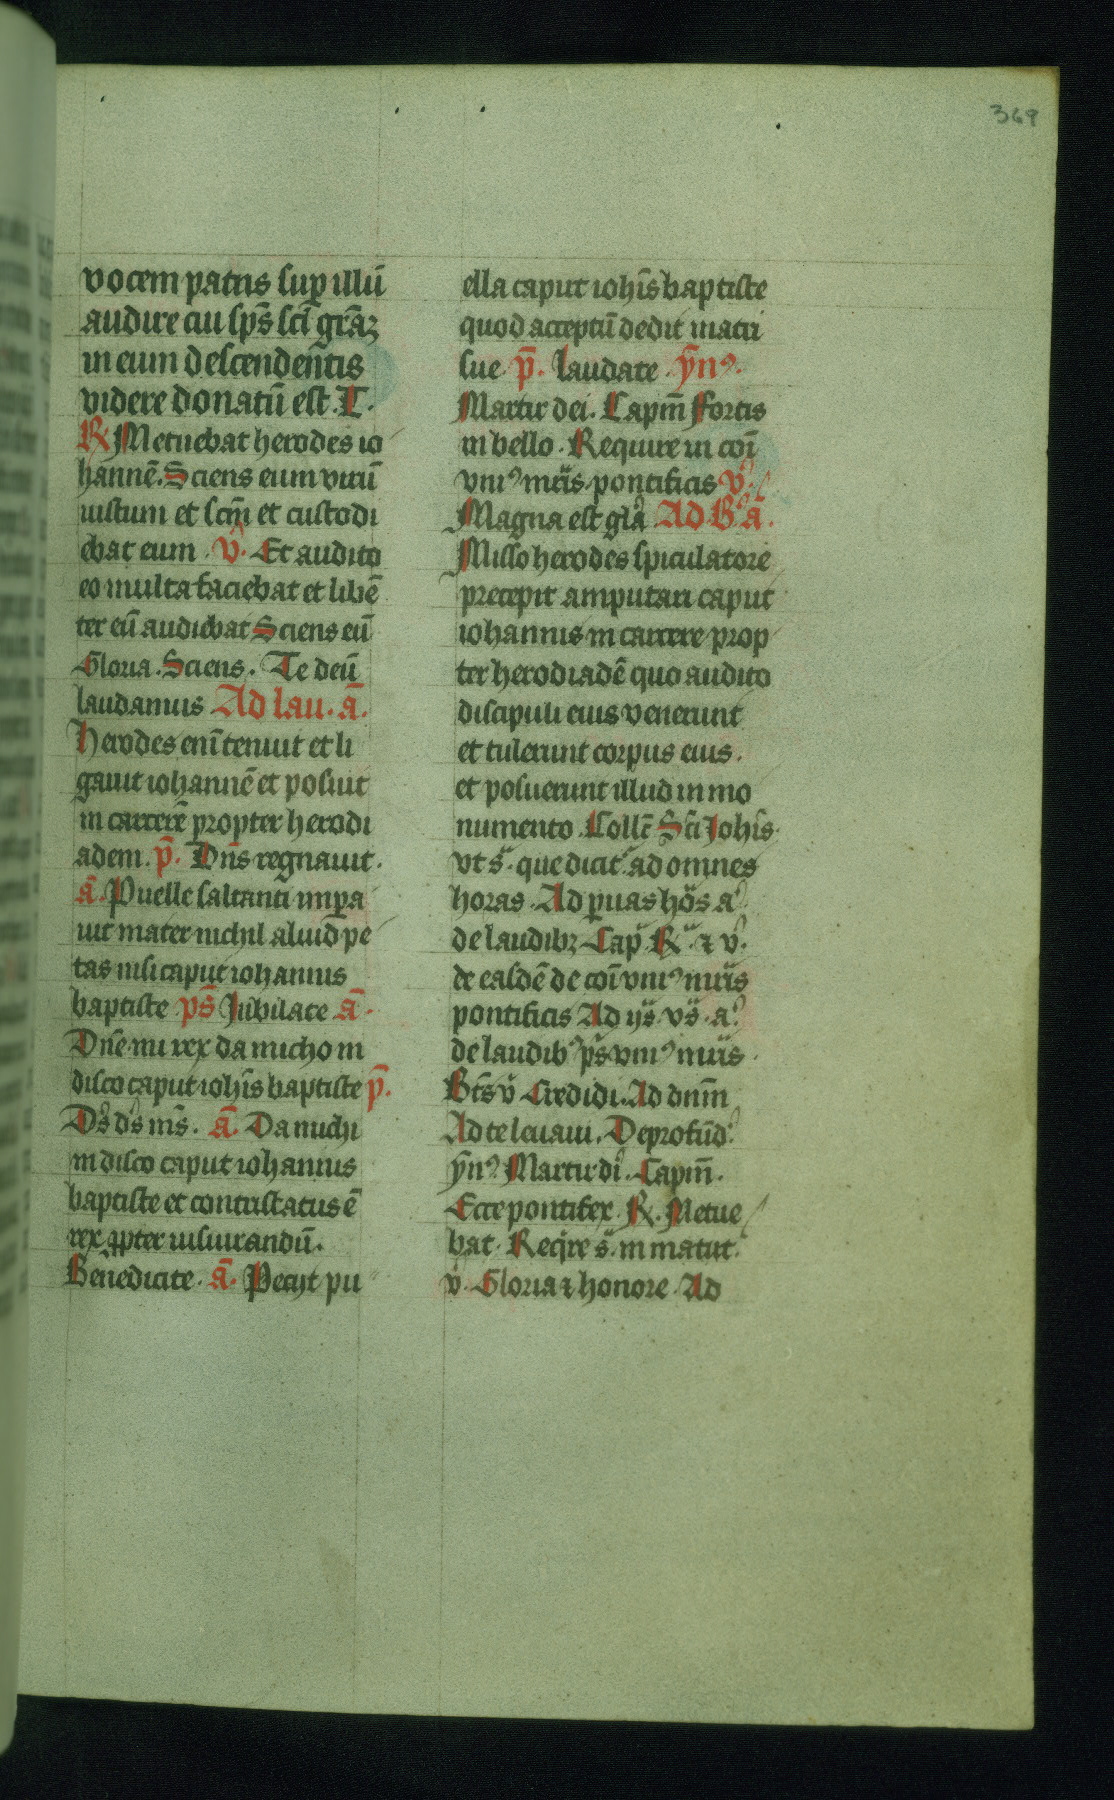 369
vocem patris sup illū
audire cui sp̄s sc̄i gr̄aꝫ
in eum descendentis
videre donatū est. T.
R Metuebat herodes io
hannē. Sciens eum virū
iustum et scm̄ et custodi
ebat eum. v̊. Et audito
eo multa faciebat et libē
ter eū audiebat Sciens eū
Gloria. Sciens. Te deū
laudamus Ad lau. ā.
Herodes enī tenuit et li
gauit iohannē et posuit
in carcerē propter herodi
adem. p̄. Dn̄s regnauit.
ā. Puelle saltanti imꝑa
uit mater nichil aliud pe
tas nisi caput iohannis
baptiste ps̄ Jubilate ā.
Dn̄e mi rex da michi in
disco caput ioh̄is baptiste p̄.
Ds̄ ds̄ ms̄. ā. Da michi
in disco caput iohannis
baptiste et contristatus ē
rex ꝓpter iusiurandū.
Benedicite. ā. Pecijt pu
ella caput ioh̄is baptiste
quod acceptū dedit matri
sue. p̄. laudate. ȳnꝰ.
Martir dei. Capm̄ Fortis
in bello. Require in coī
vniꝰ mr̄is pontificis v̊.
Magna est gl̄a Ad B ā.
Misso herodes spiculatore
precepit amputari caput
iohannis in carcere prop
ter herodiadē quo audito
discipuli eius venerunt
et tulerunt corpus eius.
et posuerunt illud in mo
numento. Collc̄ Sc̄i Joh̄is
vt s̄. que dicit᷑ ad omnes
horas. Ad p̲uas hōs ā
de laudibꝫ Cap̄. R. ⁊ v̊.
de ealdē de coī vniꝰ mr̄is
pontificis Ad ijs̄ vs̄. a.
de laudibꝰ ps̄ vniꝰ mr̄is.
Bt̄s v̄ Credidi. Ad dnm̄
Ad te leuaui. Deprofūd.
ȳnꝰ Martir dī. Capm̄.
Ecce pontifex. R. Metue
bat. Req̄re s̄. in matut.
v̊. Gloria ⁊ honore. Ad